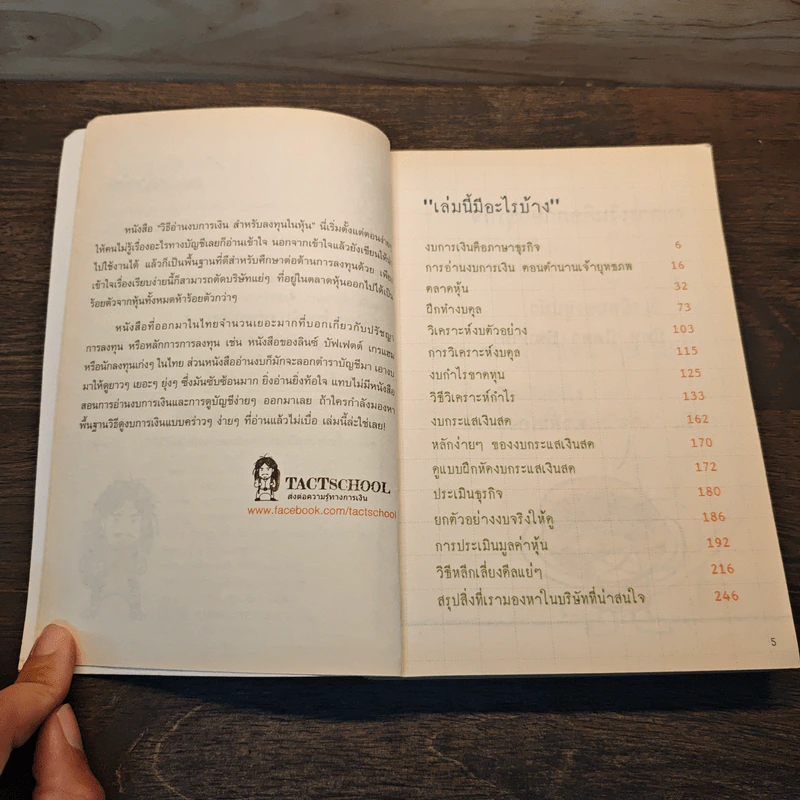 หนังสือ "วิธีอ่านงบการเงิน สำหรับลงทุนในหุ้น" นี้เริ่มตั้งแต่ตอน
ให้คนไม่รู้เรื่องอะไรทางบัญชีเลยก็อ่านเข้าใจ นอกจากเข้าใจแล้วยังเขียนให้
ไปใช้งานได้ แล้วก็เป็นพื้นฐานที่ดีสำหรับศึกษาต่อด้านการลงทุนด้วย
เข้าใจเรื่องเรียบง่ายนี้ก็สามารถตัดบริษัทแย่ๆ ที่อยู่ในตลาดหุ้นออกไปได้เป็น
ร้อยตัวจากหุ้นทั้งหมดห้าร้อยตัวกว่าๆ
หนังสือที่ออกมาในไทยจำนวนเยอะมากที่บอกเกี่ยวกับปรัชญา
การลงทุน หรือหลักการการลงทุน เช่น หนังสือของลินซ์ บัฟเฟตต์ เกรแฮม
หรือนักลงทุนเก่งๆ ในไทย ส่วนหนังสืออ่านงบก็มักจะลอกตำราบัญชีมา เอางบ
มาให้ดูยาวๆ เยอะๆ ยุ่งๆ ซึ่งมันซับซ้อนมาก ยิ่งอ่านยิ่งท้อใจ แทบไม่มีหนังสือ
สอนการอ่านงบการเงินและการดูบัญชีง่ายๆ ออกมาเลย ถ้าใครกำลังมองหา
พื้นฐานวิธีดูงบการเงินแบบคร่าวๆ ง่ายๆ ที่อ่านแล้วไม่เบื่อ เล่มนี้ล่ะใช่เลย!
TACTSCHOOL
ส่งต่อความรู้ทางการเงิน
www.facebook.com/tactschool
"เล่มนี้มีอะไรบ้าง"
งบการเงินคือภาษาธุรกิจ 6
การอ่านงบการเงิน ตอนตำนานเจ้ายุทธภพ 16
ตลาดหุ้น 32
ฝึกทำงบดุล 73
วิเคราะห์งบตัวอย่าง 103
การวิเคราะห์งบดุล 115
งบกำไรขาดทุน 125
วิธีวิเคราะห์กำไร 133
งบกระแสเงินสด 162
หลักง่ายๆ ของงบกระแสเงินสด 170
ดูแบบฝึกหัดงบกระแสเงินสด 172
ประเมินธุรกิจ 180
ยกตัวอย่างงบจริงให้ดู 186
การประเมินมูลค่าหุ้น 192
วิธีหลีกเลี่ยงดีลแย่ๆ 216
สรุปสิ่งที่เรามองหาในบริษัทที่น่าสนใจ 246
5